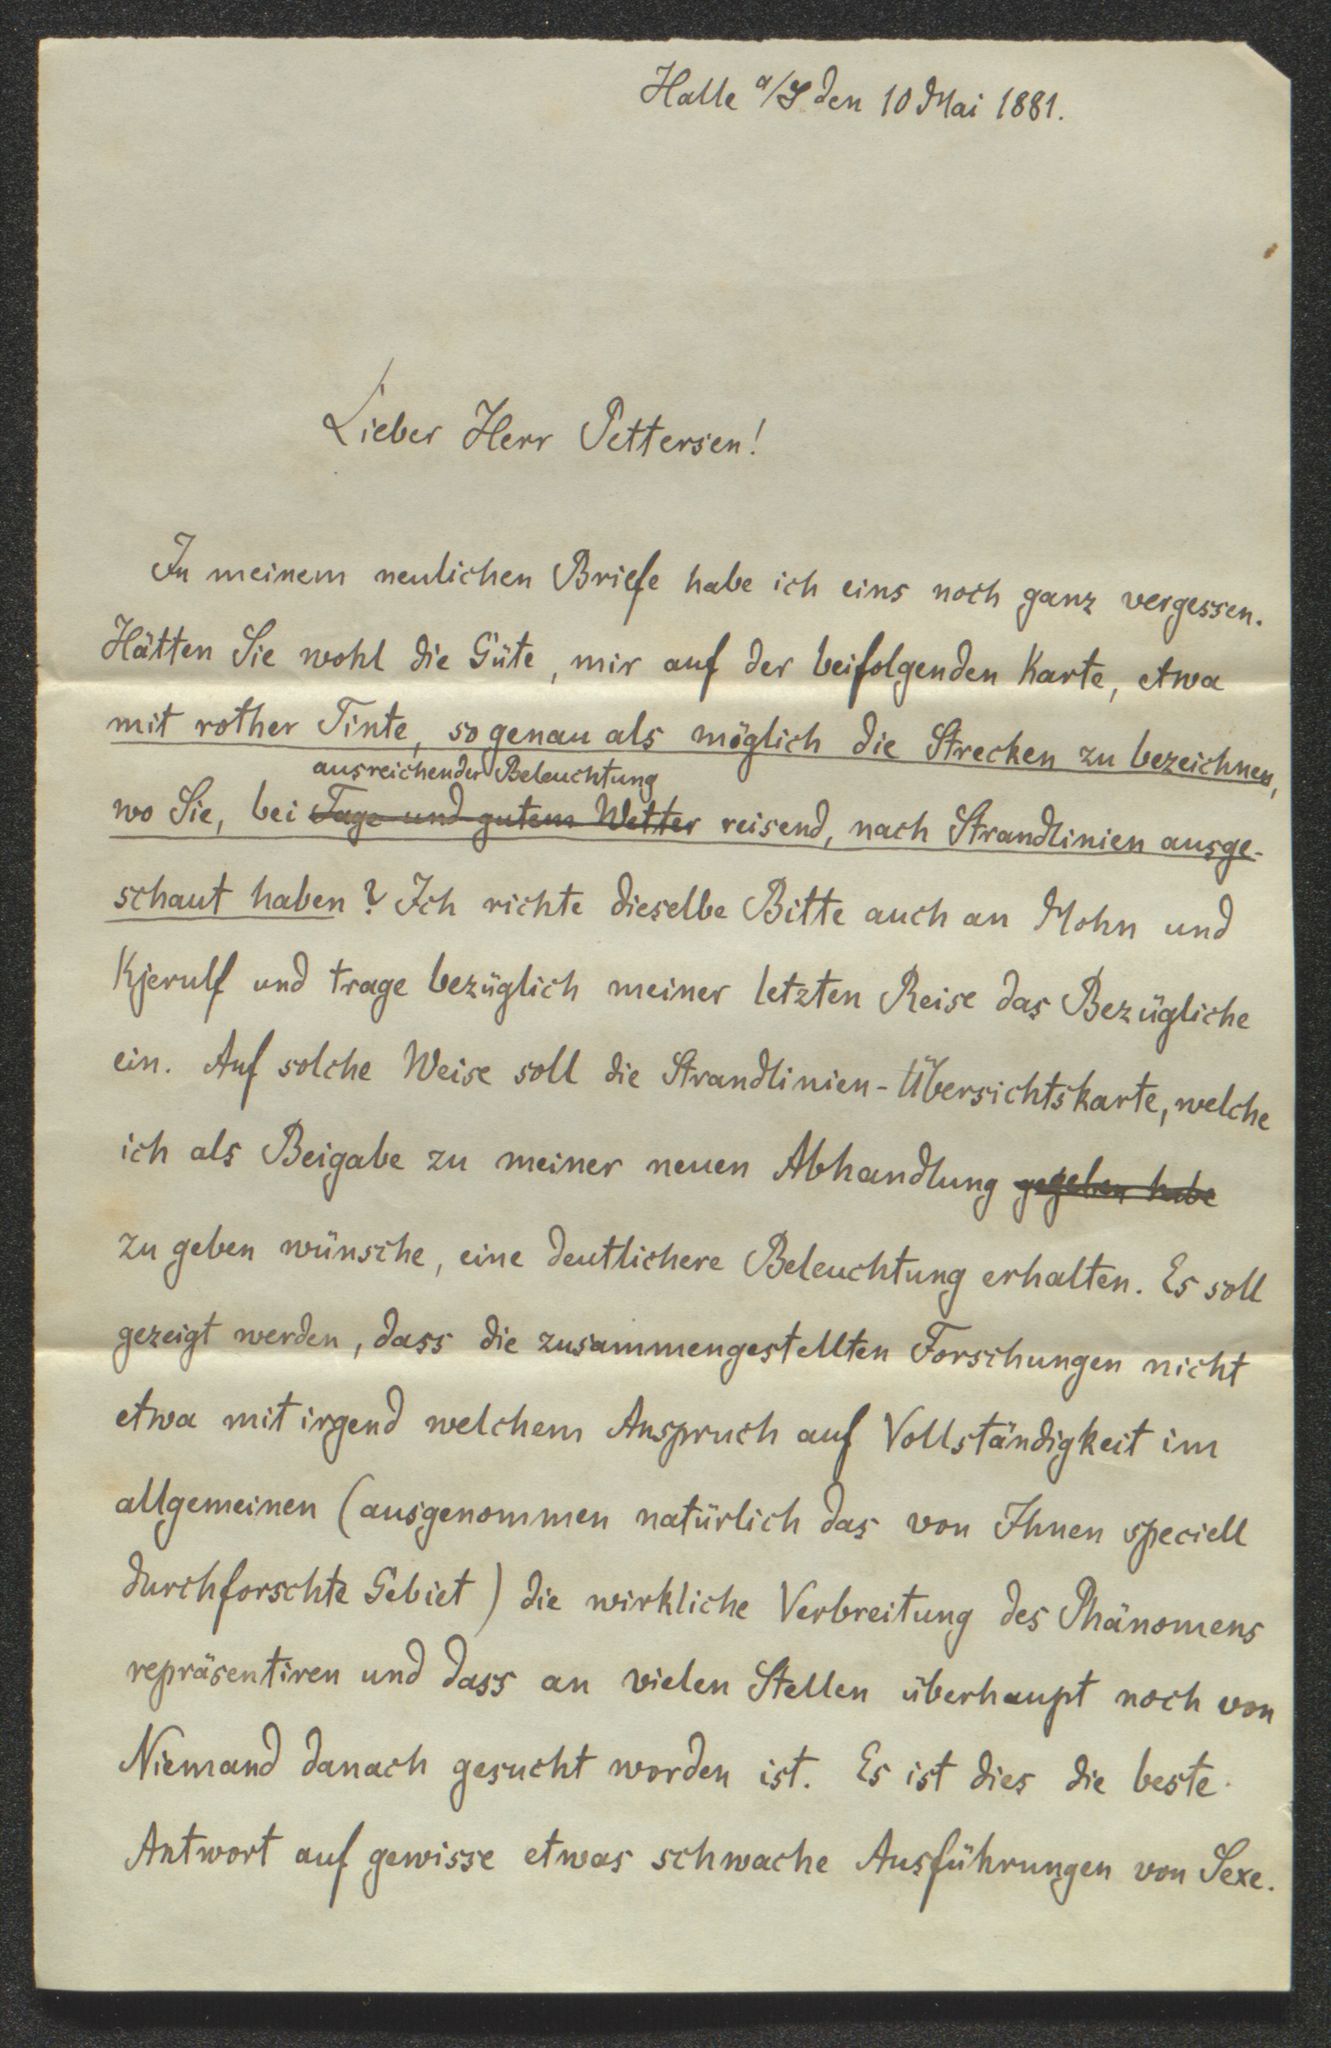 Halle a/S den 10 Mai 1881.
Lieber Herr Pettersen!
In meinem neulichen Briefe habe ich eins noch ganz vergessen.
Hätten Sie wohl die Güte, mir auf der beifolgenden Karte, etwa
mit rother Tinte, so genau als möglich die Strecken zu bezeichnen,
ausreichender Beleuchtung
wo Sie, bei Tage und gutem Wetter reisend, nach Strandlinien ausge-
schaut haben? Ich richte dieselbe Bitte auch an Mohn und
Kjerulf und trage bezüglich meiner letzten Reise das Bezügliche
ein. Auf solche Weise soll die Strandlinien-Übersichtskarte, welche
ich als Beigabe zu meiner neuen Abhandlung gegeben habe
zu geben wünsche, eine deutlichere Beleuchtung erhalten. Es soll
gezeigt werden, dass die zusammengestellten Forschungen nicht
etwa mit irgend welchem Anspruch auf Vollständigkeit im
allgemeinen (ausgenommen natürlich das von Ihnen speciell
durchforschte Gebiet) die wirkliche Verbreitung des Phänomens
repräsentiren und dass an vielen Stellen überhaupt noch von
Niemand danach gesucht worden ist. Es ist dies die beste
Antwort auf gewisse etwas schwache Ausführungen von Sexe.